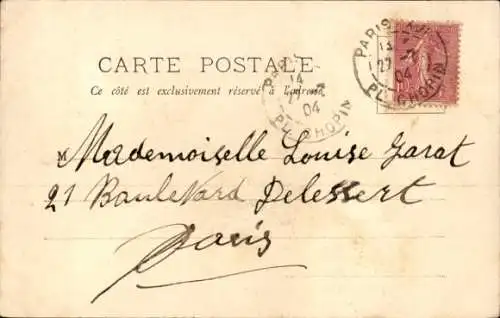 CARTE POSTALE
Ce côté est exclusivement réservé à l'adresse
PARIS
13
27
04
PL. CHOPIN
PARIS
14
27 2
04
PL. CHOPIN
Mademoiselle Louise Garat
21 Boulevard Delessert
Paris